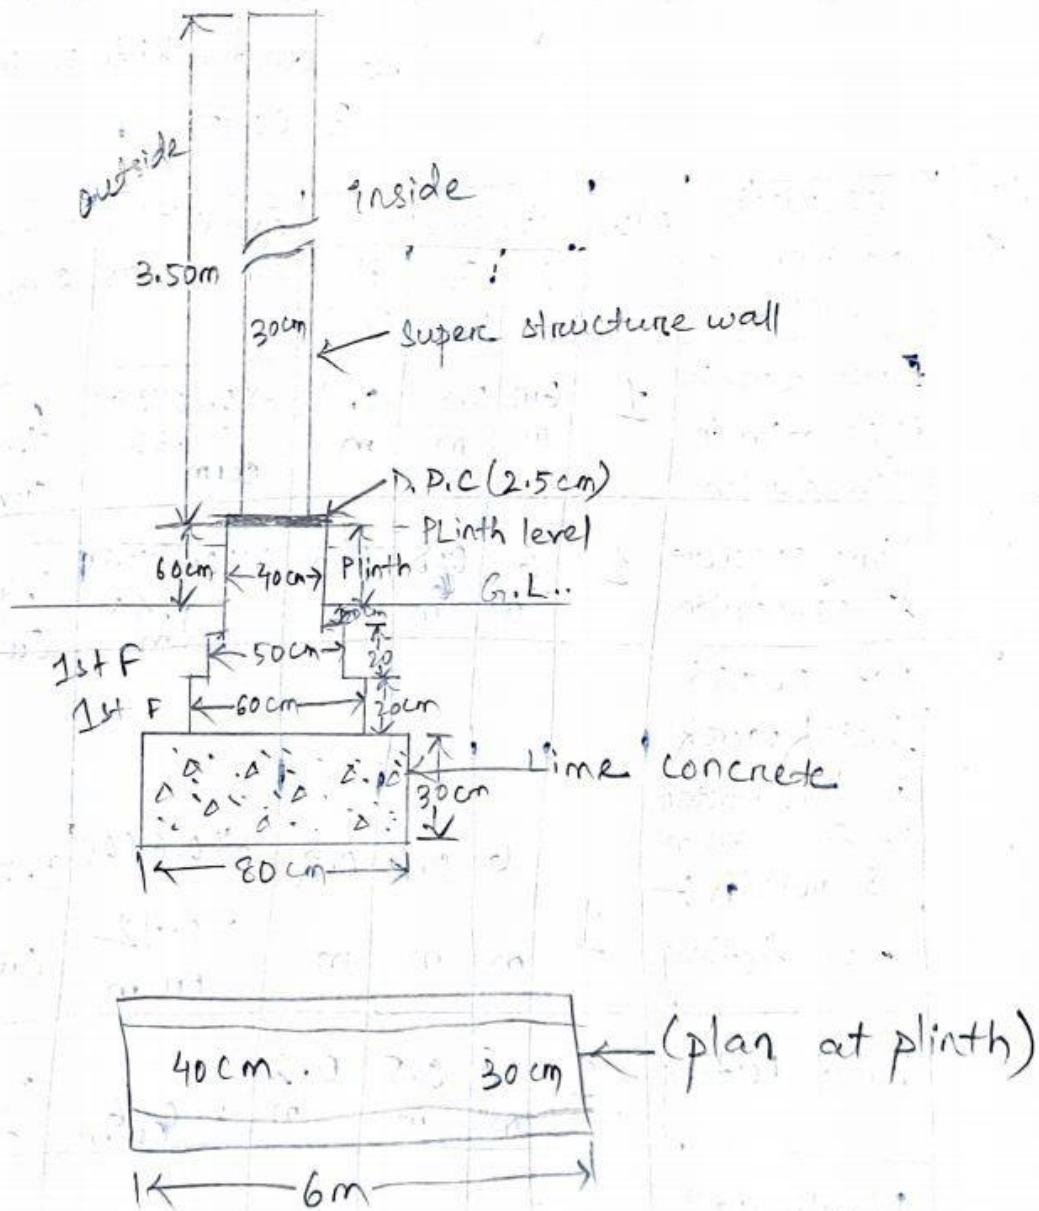 outside
inside
3.50m
30cm
Super structure wall
D.P.C (2.5cm)
PLinth level
60cm
40cm
Plinth
G.L..
1st F
50cm
20
1st F
60cm
20cm
Lime concrete
30cm
80cm
40cm
30cm
(plan at plinth)
6m